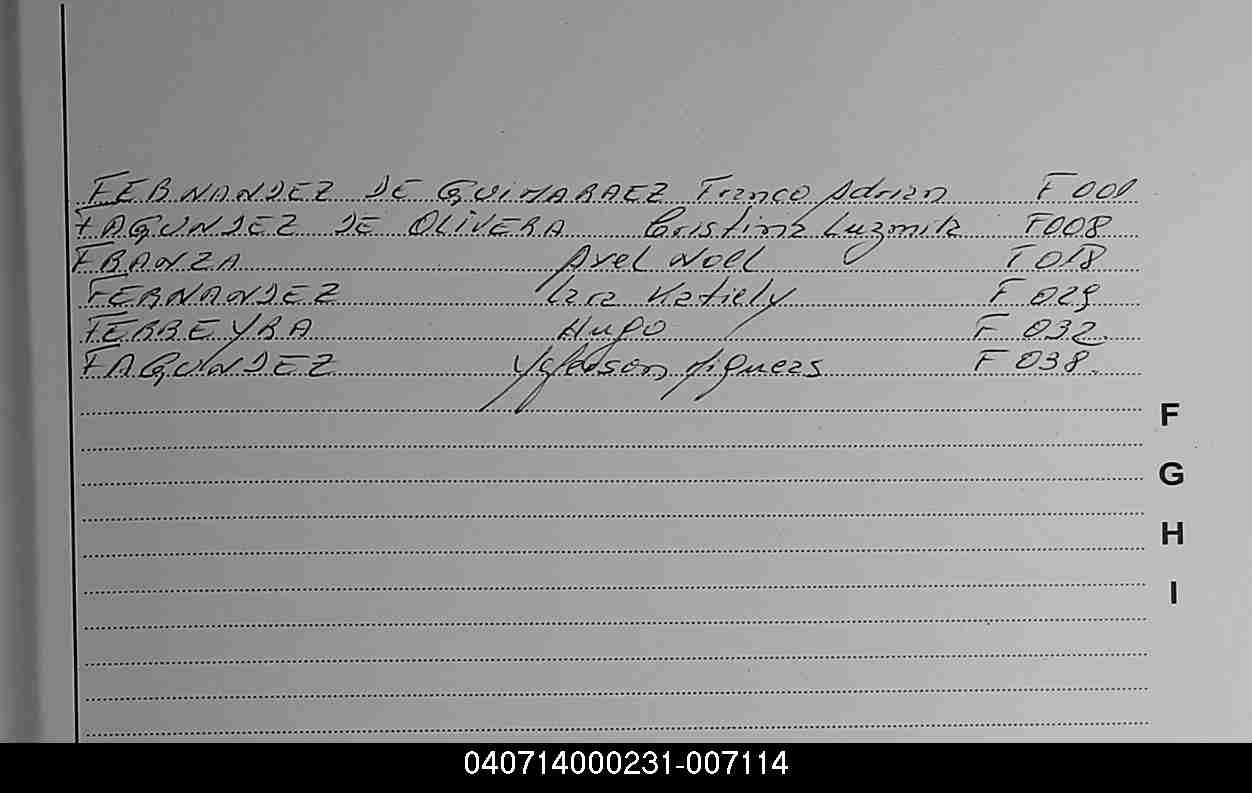 FERNANDEZ DE GUIMARAEZ Franco Adrian F001
FAGUNDEZ DE OLIVERA Cristina Luzmila F008
FRANZA Axel Noel F018
FERNANDEZ Katiely F029
FERREYRA Hugo F 032.
FAGUNDEZ F 038.
F
G
H
I
040714000231-007114